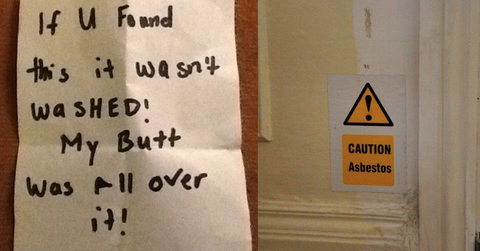 If U Found
this it wasn't
WASHED!
My Butt
was All over
it!
CAUTION
Asbestos